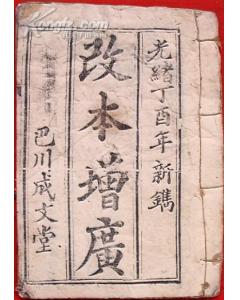 光緒丁酉年新鐫
改本增廣
巴川成文堂